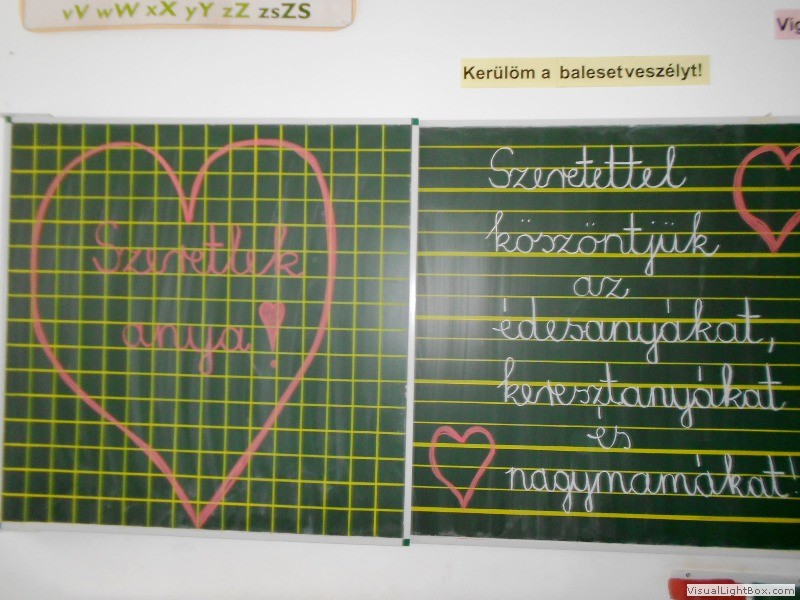 vV wW xX yY zZ zsZS
Vig
Kerülöm a balesetveszélyt!
Szeretlek
anya!
Szeretettel
köszöntjük
az
édesanyákat,
keresztanyákat
és
nagymamákat!
VisualLightBox.com